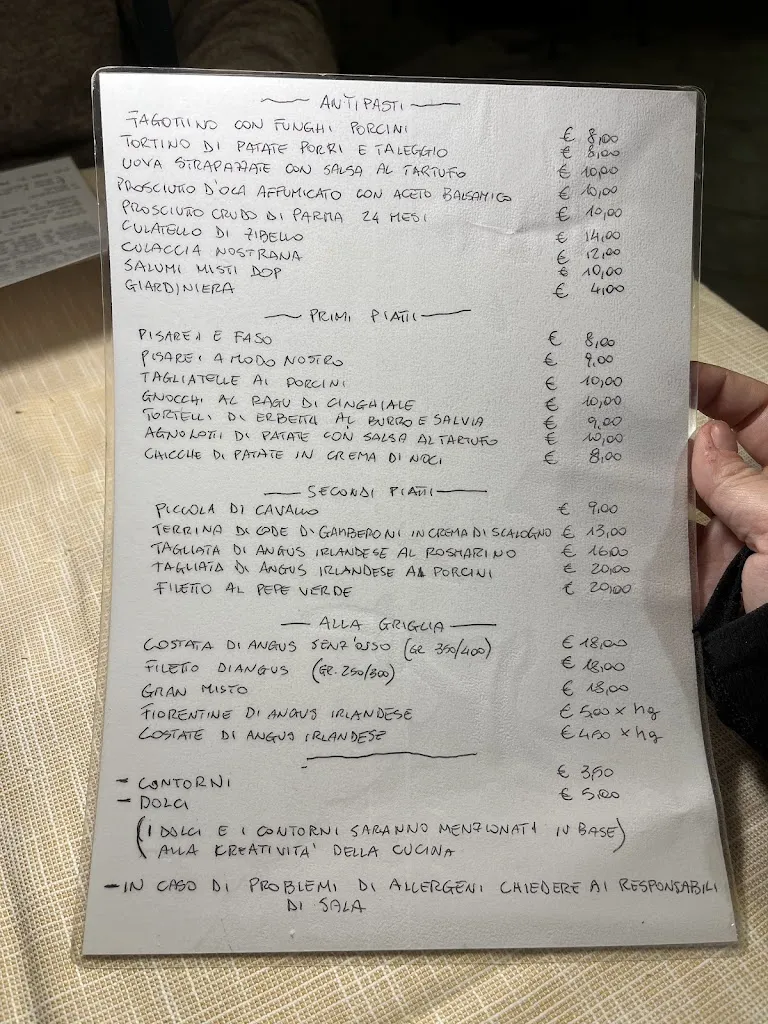 ANTIPASTI
FAGOTTINO CON FUNGHI PORCINI € 8,00
TORTINO DI PATATE PORRI E TALEGGIO € 8,00
UOVA STRAPAZZATE CON SALSA AL TARTUFO € 10,00
PROSCIUTTO D'OCA AFFUMICATO CON ACETO BALSAMICO € 10,00
PROSCIUTTO CRUDO DI PARMA 24 MESI € 10,00
CULATELLO DI ZIBELLO € 14,00
CULACCIA NOSTRANA € 12,00
SALUMI MISTI DOP € 10,00
GIARDINIERA € 4,00
PRIMI PIATTI
PISAREI E FASO € 8,00
PISAREI A MODO NOSTRO € 9,00
TAGLIATELLE AI PORCINI € 10,00
GNOCCHI AL RAGU DI CINGHIALE € 10,00
TORTELLI DI ERBETTA AL BURRO E SALVIA € 9,00
AGNOLOTTI DI PATATE CON SALSA AL TARTUFO € 10,00
CHICCHE DI PATATE IN CREMA DI NOCI € 8,00
SECONDI PIATTI
PICCOLA DI CAVALLO € 9,00
TERRINA DI CODE DI GAMBERONI IN CREMA DI SCALOGNO € 13,00
TAGLIATA DI ANGUS IRLANDESE AL ROSMARINO € 16,00
TAGLIATA DI ANGUS IRLANDESE AI PORCINI € 20,00
FILETTO AL PEPE VERDE € 20,00
ALLA GRIGLIA
COSTATA DI ANGUS SENZ'OSSO (GR 350/400) € 18,00
FILETTO DI ANGUS (GR. 250/300) € 18,00
GRAN MISTO € 18,00
FIORENTINE DI ANGUS IRLANDESE € 5,00 x hg
COSTATE DI ANGUS IRLANDESE € 4,50 x hg
- CONTORNI € 3,50
- DOLCI € 5,00
(I DOLCI E I CONTORNI SARANNO MENZIONATI IN BASE)
ALLA CREATIVITA' DELLA CUCINA
- IN CASO DI PROBLEMI DI ALLERGENI CHIEDERE AI RESPONSABILI
DI SALA